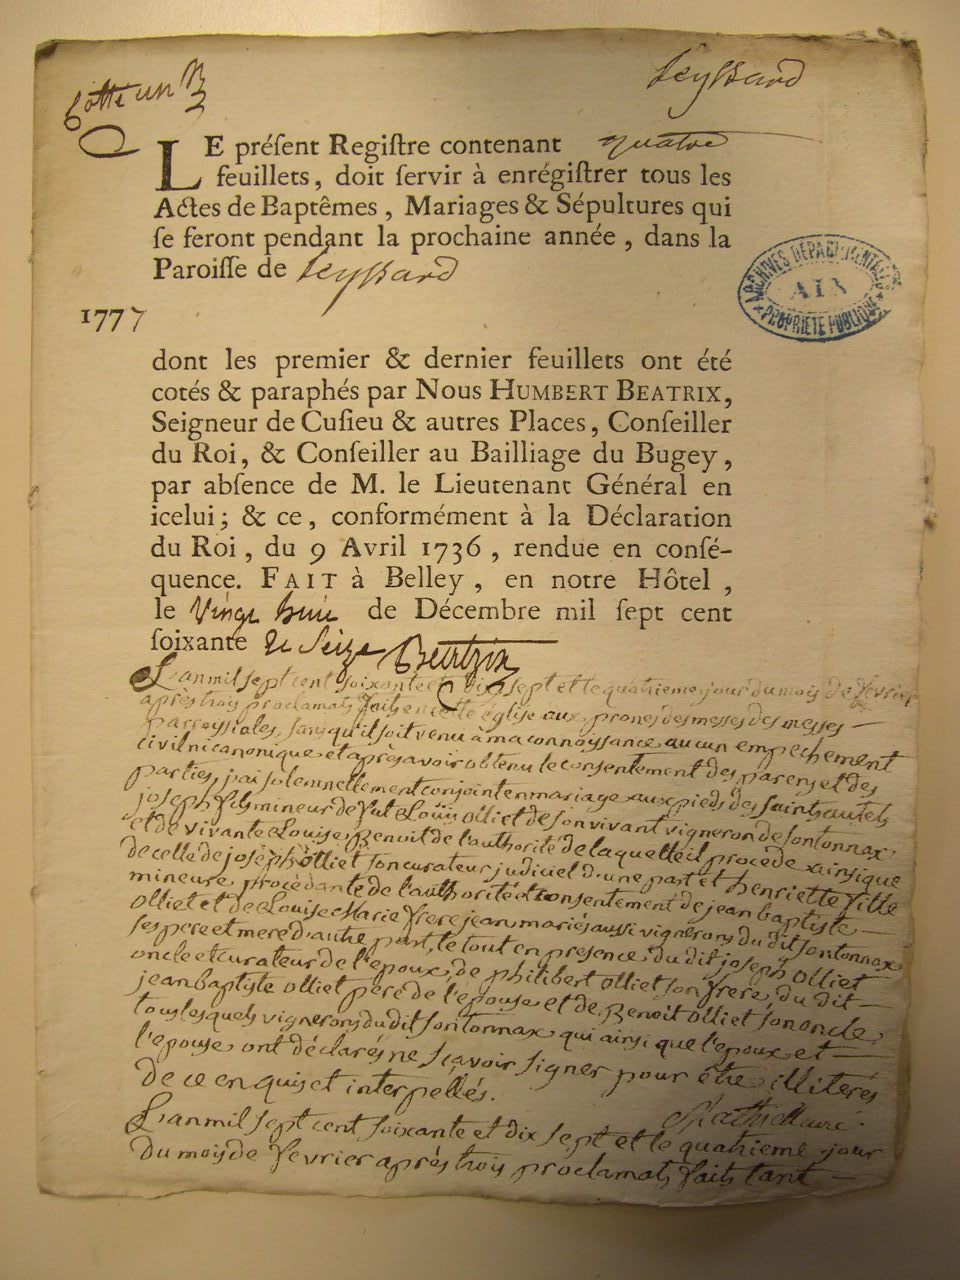 Cotté un
Leyssard
LE préſent Regiſtre contenant quatre
feuillets, doit ſervir à enrégiſtrer tous les
Actes de Baptêmes, Mariages & Sépultures qui
ſe feront pendant la prochaine année, dans la
Paroiſſe de Leyssard
ARCHIVES DEPARTEMENTALES
AIN
PROPRIETE PUBLIQUE
1777
dont les premier & dernier feuillets ont été
cotés & paraphés par Nous HUMBERT BEATRIX,
Seigneur de Cuſieu & autres Places, Conſeiller
du Roi, & Conſeiller au Bailliage du Bugey,
par abſence de M. le Lieutenant Général en
icelui; & ce, conformément à la Déclaration
du Roi, du 9 Avril 1736, rendue en conſé-
quence. FAIT à Belley, en notre Hôtel,
le Vingt huit de Décembre mil ſept cent
ſoixante et Seize Beatrix
L'an mil sept cent soixante et dix sept et le quatrieme jour du mois de fevrier
après trois proclamats faits en cette église aux prones des messes des messes
parroissiales, sans qu'il soit venu à ma connoissance aucun empechement
civil ni canonique et après avoir obtenu le consentement des parens et des
parties, j'ai solemnellement conjoint en mariage aux pieds des saints autels
joseph fils mineur de fut Louis olliet de son vivant vigneron de sontonnax
et de vivante Louise Benoit de l'authorité de laquelle il procede ainsi que
de celle de josèph olliet son curateur judiciel d'une part et henriette fille
mineure procédante de l'authorité et consentement de jean baptiste
olliet et de Louise Marie frere jean mariés aussi vignerons du dit sontonnax
ses pere et mere d'autre part, le tout en presence du dit joseph olliet
oncle et curateur de l'epoux, de philibert olliet son frere, du dit
jean baptiste olliet père de l'épouse et de Benoit olliet son oncle
tous lesquels vignerons du dit sontonnax qui ainsi que l'epoux et
l'epouse ont déclarés ne scavoir signer pour être illiterés
de ce enquis et interpellés.
L'an mil sept cent soixante et dix sept et le quatrieme jour
du mois de fevrier après trois proclamats faits tant